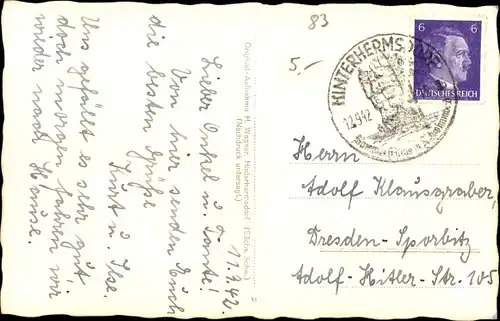 11.9.42.
Lieber Onkel u. Tante!
Von hier senden Euch
die besten Grüße
Kurt u. Ilse.
Uns gefällt es sehr gut
doch morgen fahren wir
wieder nach Hause.
Original-Aufnahme H. Wagner, Hinterhermsdorf (Sächs. Schw.)
(Nachdruck untersagt.)
83
5.-
HINTERHERMSDORF
12.9.42
6 6
DEUTSCHES REICH
Herrn
Adolf Klausgraber,
Dresden-Sporbitz
Adolf-Hitler-Str. 105